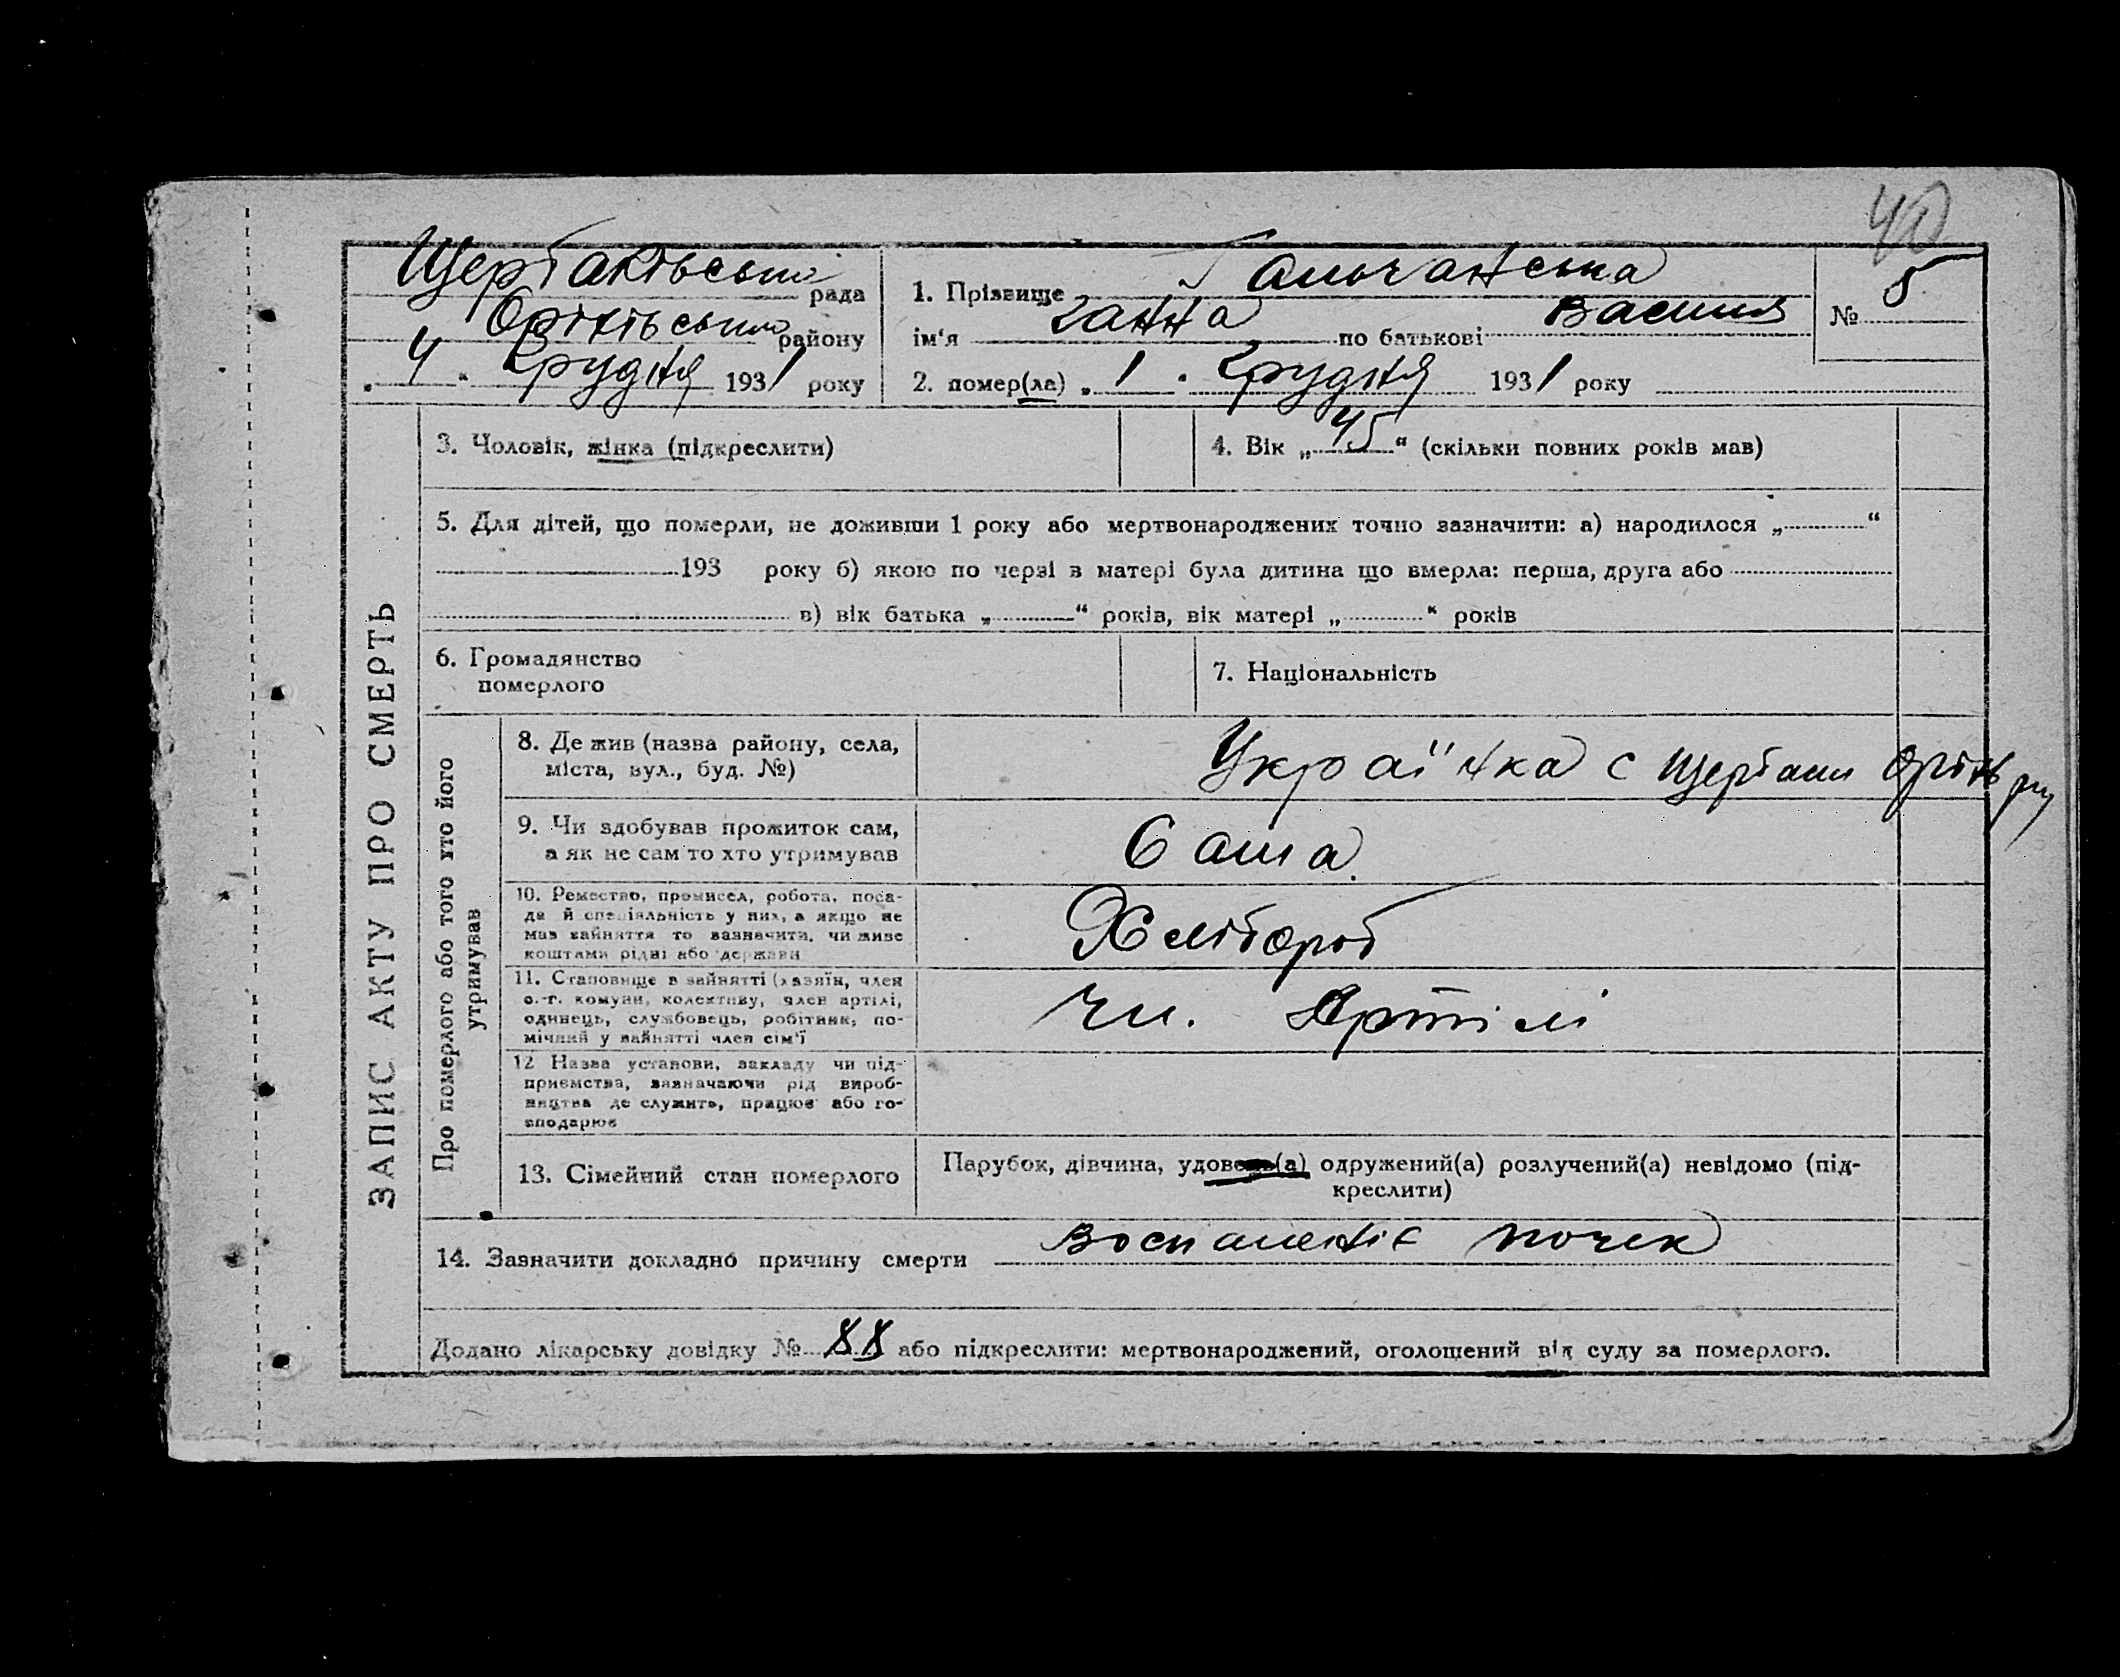 40
Щербаківська рада
Оріхівського району
„ 4 “ Грудня 1931 року
1. Прізвище Гальчанська
ім'я Ганна по батькові Василя
№ 5
2. помер(ла) „ 1 “ Грудня 1931 року
ЗАПИС АКТУ ПРО СМЕРТЬ
3. Чоловік, жінка (підкреслити)
4. Вік „ 45 “ (скільки повних років мав)
5. Для дітей, що померли, не доживши 1 року або мертвонароджених точно зазначити: а) народилося „ “
193 року б) якою по черзі в матері була дитина що вмерла: перша, друга або
в) вік батька „ “ років, вік матері „ “ років
6. Громадянство
померлого
7. Національність
Про померлого або того хто його
утримував
8. Де жив (назва району, села,
міста, вул., буд. №)
Українка с Щербаки Оріхів рну
9. Чи здобував прожиток сам,
а як не сам то хто утримував
Сама
10. Ремество, промисел, робота, поса-
да й спеціяльність у них, а якщо не
мав зайняття то зазначити, чи живе
коштами рідні або держави
Хлібороб
11. Становище в зайнятті (хазяїн, член
с.-г. комуни, колективу, член артілі,
одинець, службовець, робітник, по-
мічний у зайнятті член сім'ї
Чл. Артілі
12 Назва установи, закладу чи під-
приємства, зазначаючи рід вироб-
ництва де служить, працює або го-
сподарює
13. Сімейний стан померлого
Парубок, дівчина, удовець(а) одружений(а) розлучений(а) невідомо (під-
креслити)
14. Зазначити докладно причину смерти Воспаленіє почек
Додано лікарську довідку № або підкреслити: мертвонароджений, оголошений від суду за померлого.